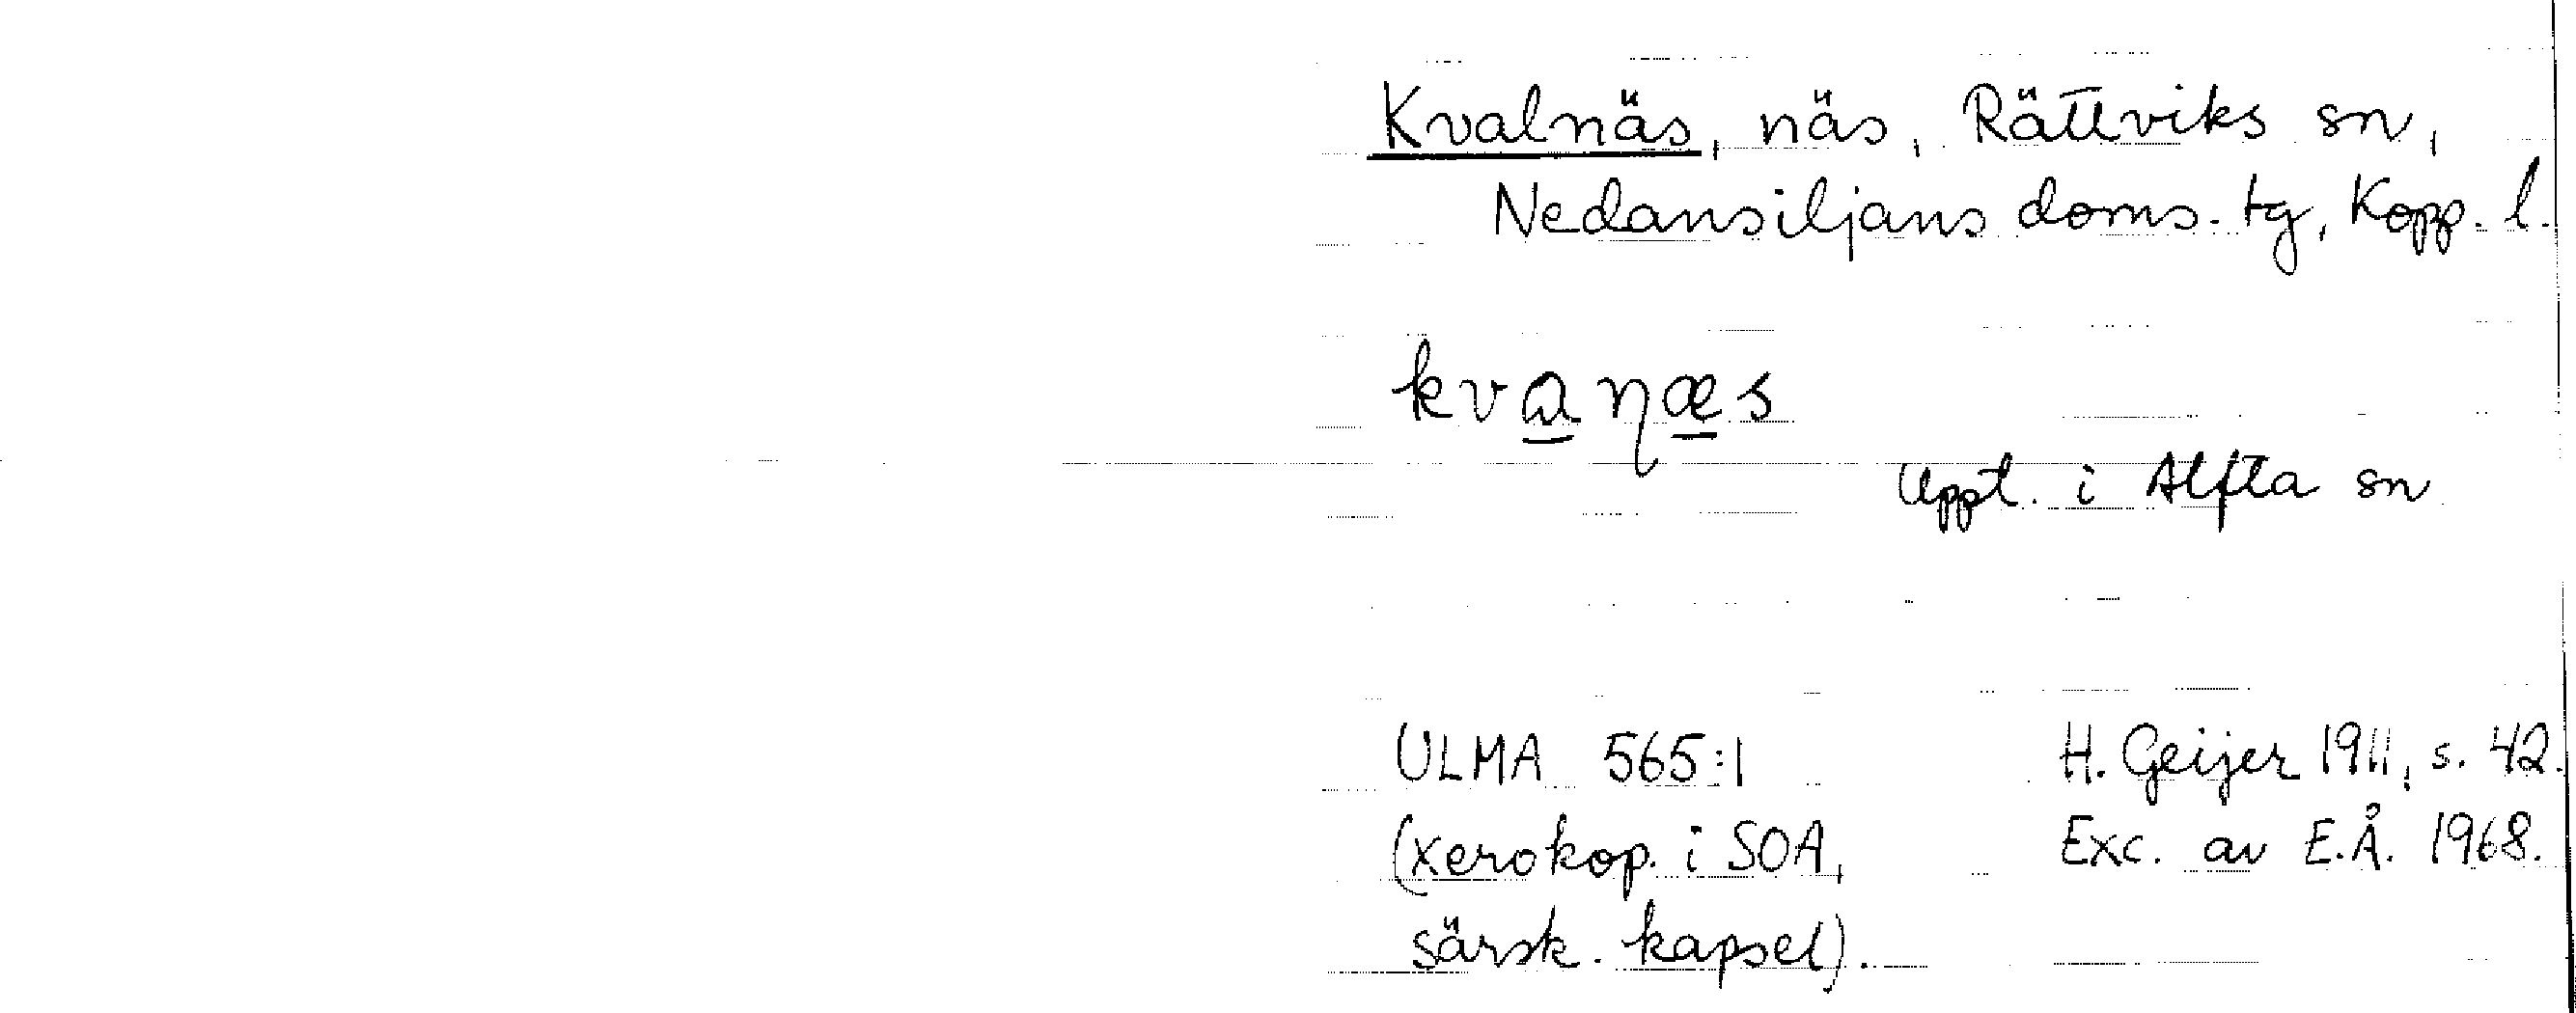 Kvalnäs, näs, Rättviks sn,
Nedansiljans doms. tg, Kopp. l.
kvaɳæs
Uppt. i Alfta sn
ULMA 565:1 H. Geijer 1911, s. 42.
(xerokop. i SOA, Exc. av E.Å. 1968.
särsk. kapsel).